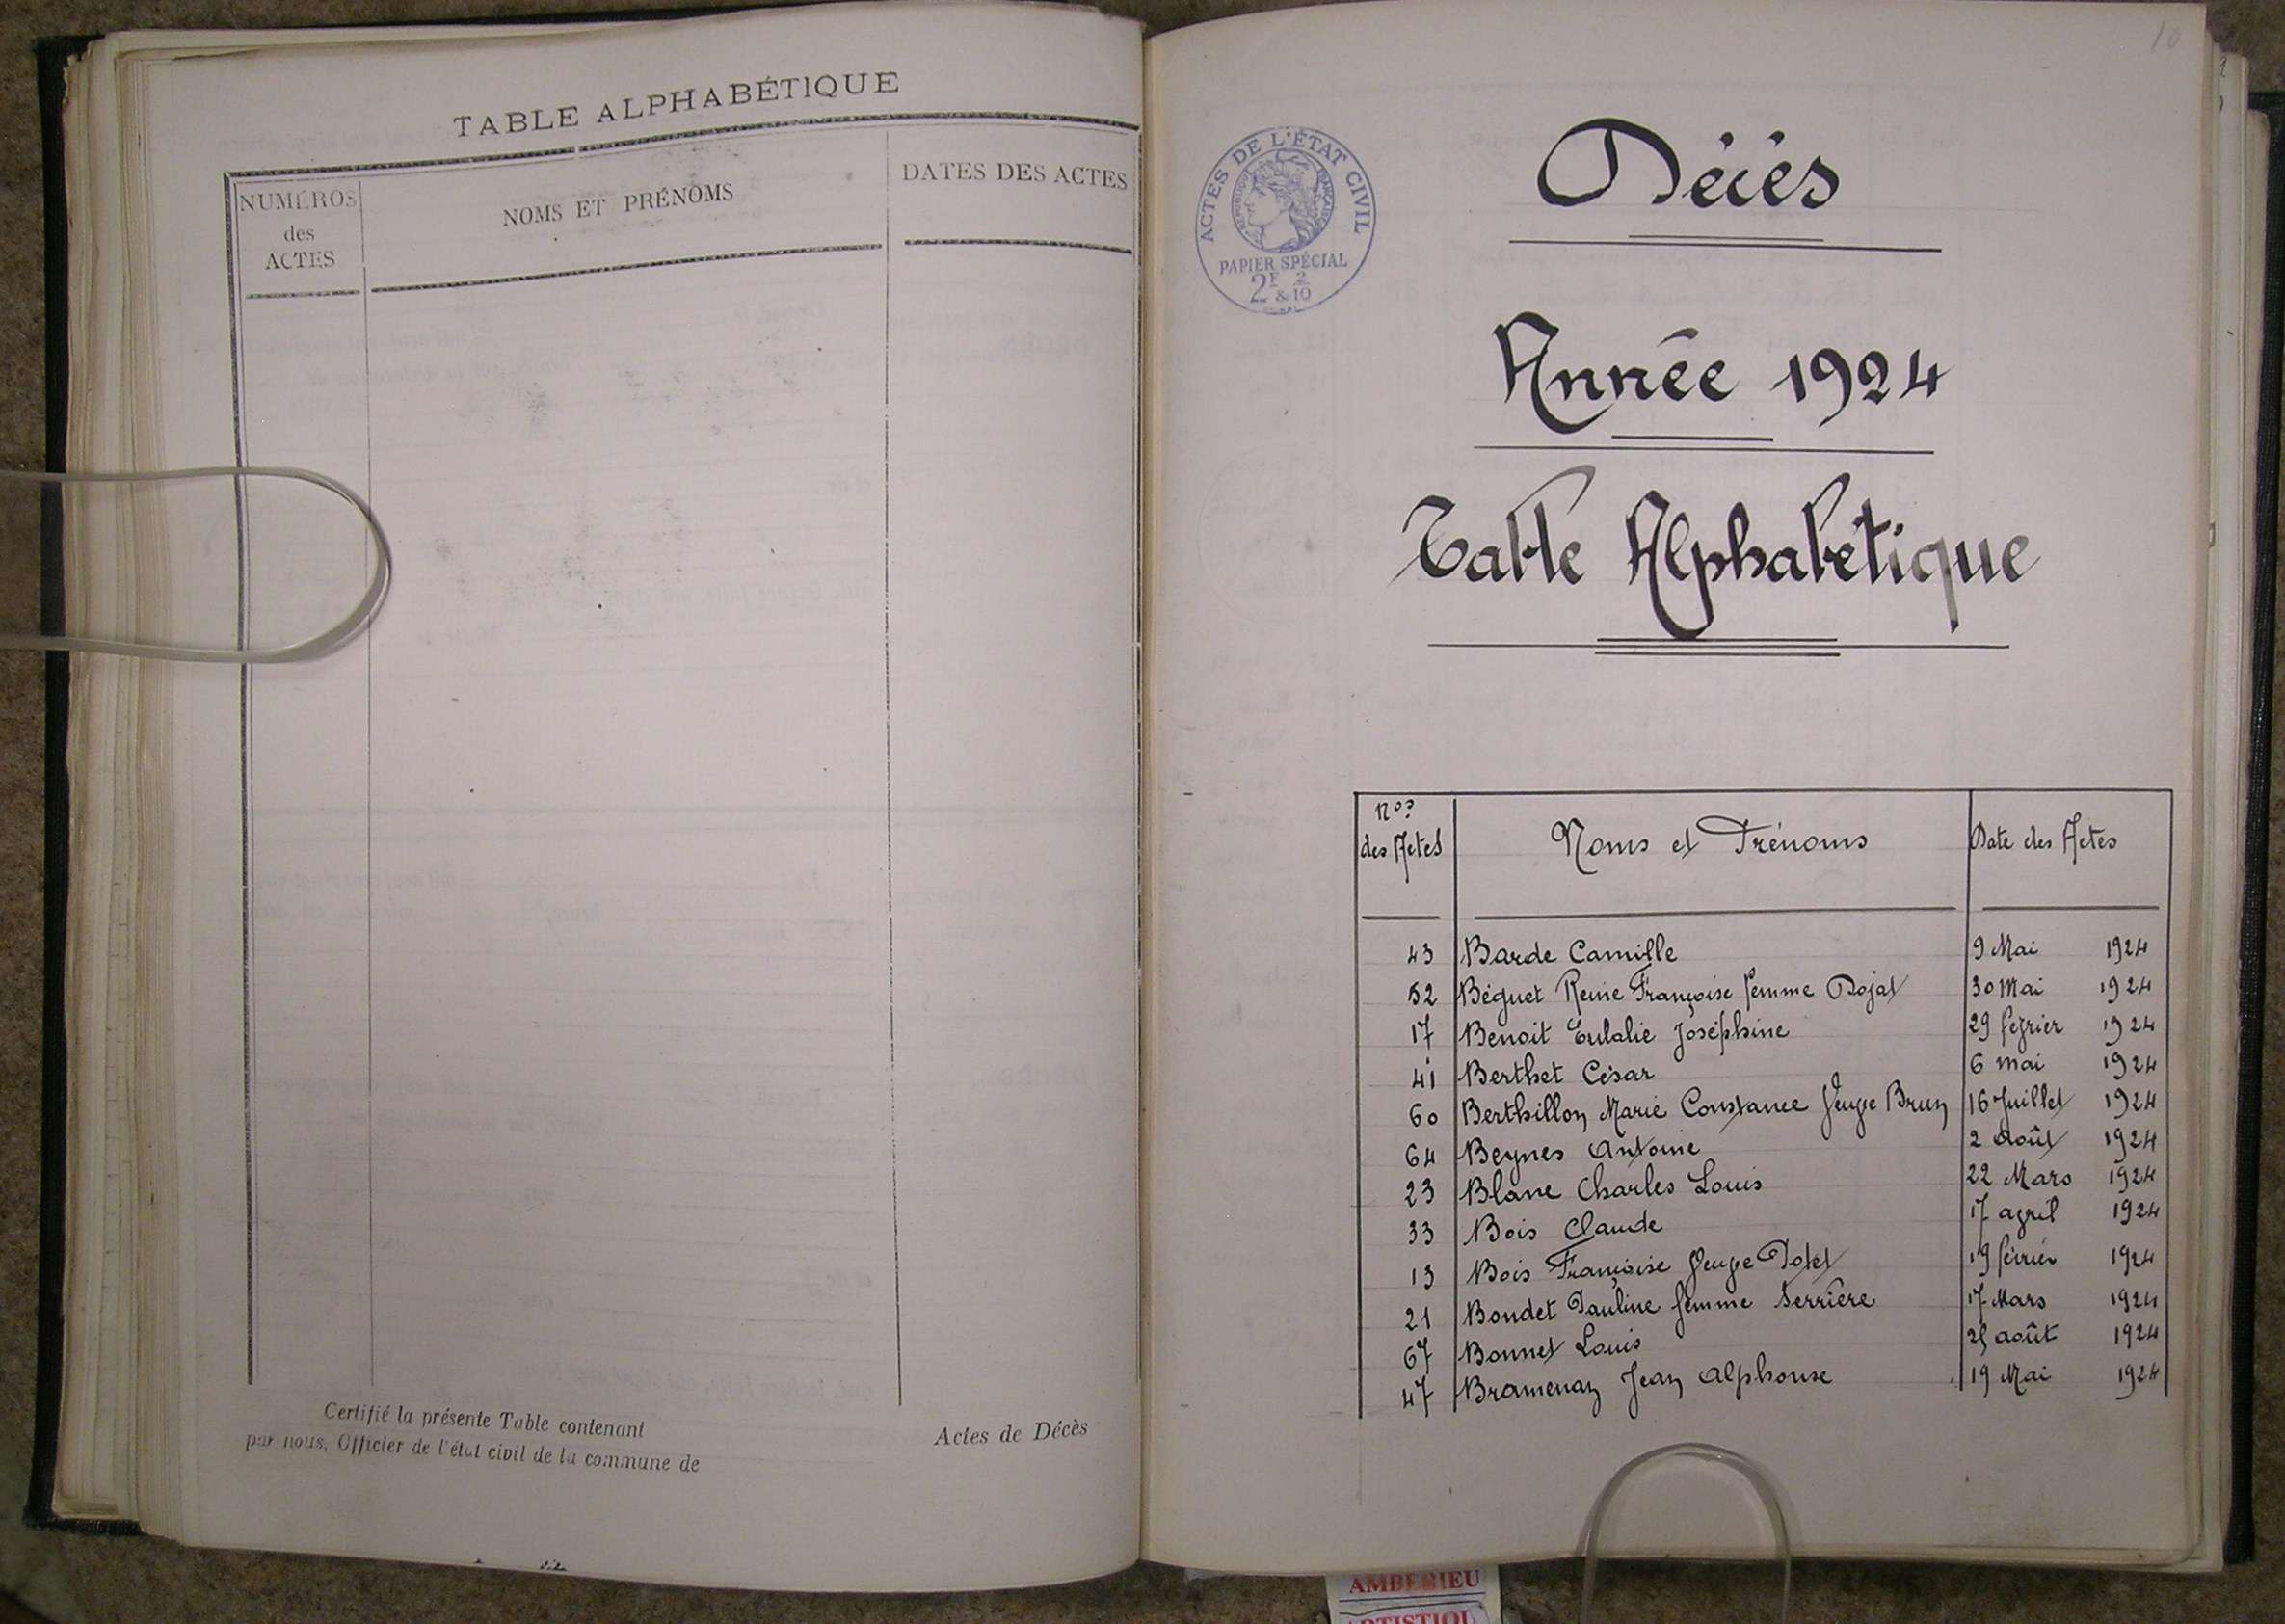 TABLE ALPHABÉTIQUE
NUMÉROS
des
ACTES
NOMS ET PRÉNOMS
DATES DES ACTES
Certifié la présente Table contenant
Actes de Décès
par nous, Officier de l'état civil de la commune de
10
ACTES DE L'ÉTAT CIVIL
RÉPUBLIQUE FRANÇAISE
PAPIER SPÉCIAL
2F & 2/10
Décès
Année 1924
Table Alphabétique
Nos des Actes
Noms et Prénoms
Date des Actes
43 Barde Camille 9 Mai 1924
52 Béguet Reine Françoise femme Dojat 30 Mai 1924
17 Benoit Eulalie Joséphine 29 février 1924
41 Berthet César 6 mai 1924
60 Berthillon Marie Constance Veuve Brun 16 Juillet 1924
64 Beynes Antoine 2 août 1924
23 Blanc Charles Louis 22 Mars 1924
33 Bois Claude 17 avril 1924
13 Bois Françoise Veuve 19 février 1924
21 Bondet Pauline femme Serrière 17 Mars 1924
67 Bonnet Louis août 1924
47 Bramenaz Jean Alphonse 19 Mai 1924
AMBERIEU